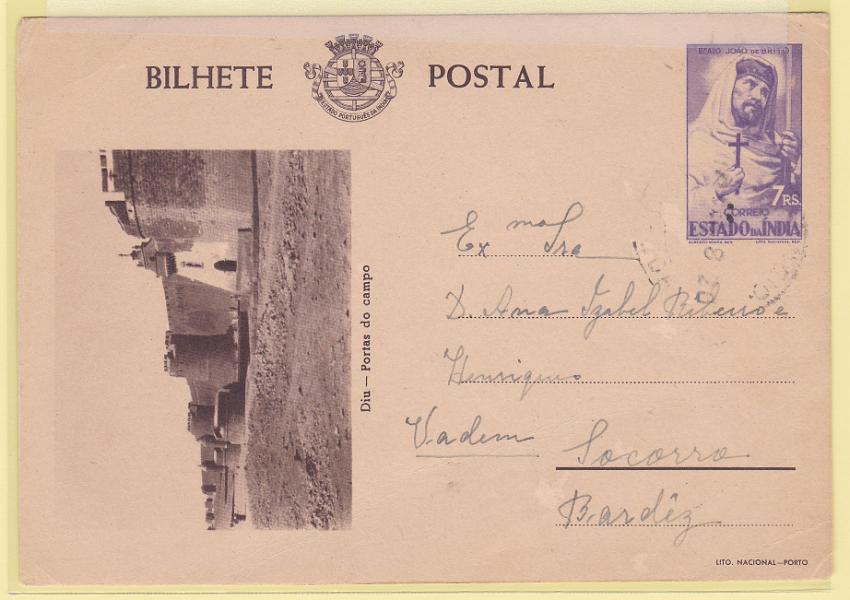 BILHETE POSTAL
ESTADO PORTUGUÊS DA INDIA
BEATO JOÃO DE BRITO
7 RS.
CORREIO
ESTADO DA ÍNDIA
Diu — Portas do campo
Exma Sra
D. Ana Izabel Ribeiro e
Henriques
Vadem Socorro
Bardêz
LITO. NACIONAL—PORTO